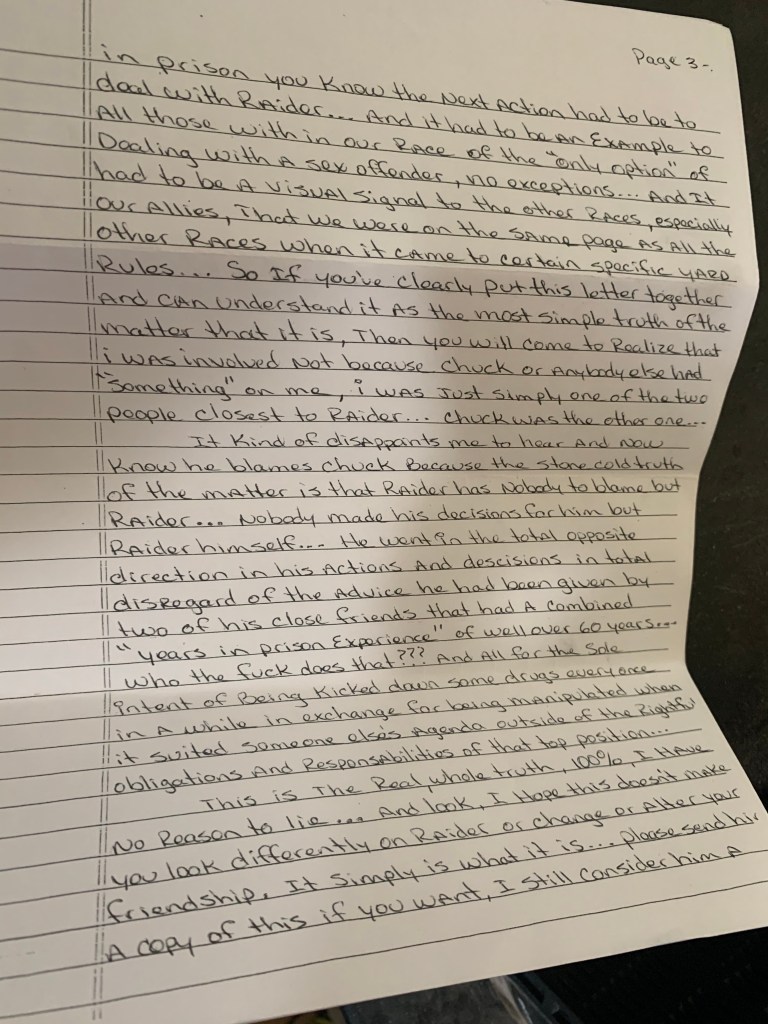 Page 3-.
in prison you know the Next Action had to be to
deal with RAider... And it had to be An Example to
All those with in our Race of the "only option" of
Dealing with A sex offender, no exceptions... And It
had to be A Visual Signal to the other Races, especially
our Allies, That we were on the same page As All the
other Races when it came to certain specific YARD
Rules... So If you've clearly put this letter together
And can understand it As the most simple truth of the
matter that it is, Then you will come to Realize that
i was involved Not because Chuck or Anybody else had
"something" on me, i was Just simply one of the two
people closest to RAider... Chuck was the other one...
It Kind of disAppoints me to hear And Now
Know he blames Chuck Because the stone cold truth
of the matter is that RAider has Nobody to blame but
RAider... Nobody made his decisions for him but
RAider himself... He went in the total opposite
direction in his Actions And descisions in total
disRegard of the Advice he had been given by
two of his close friends that had A combined
"years in prison Experience" of well over 60 years...
Who the fuck does that??? And All for the Sole
intent of Being Kicked down some drugs every once
in A while in exchange for being manipulated when
it suited someone elses Agenda outside of the Rightful
obligations And ResponsAbilities of that top position...
This is The Real, whole truth, 100%, I HAve
No Reason to lie... And look, I Hope this doesn't make
you look differently on RAider or change or Alter your
friendship. It Simply is what it is... please send him
A copy of this if you want, I still consider him A